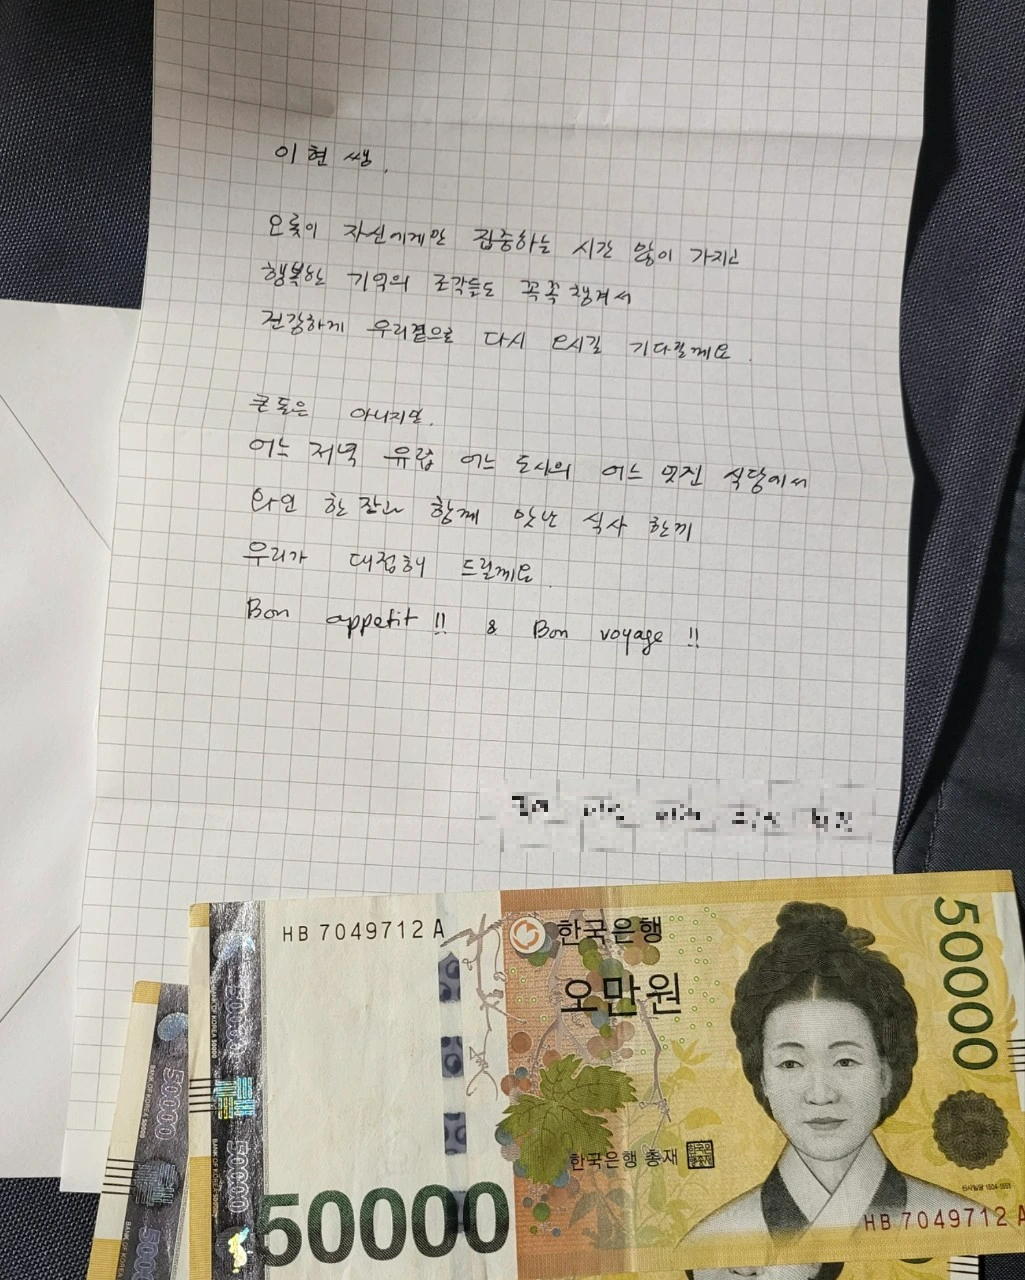 이현 쌤,
오롯이 자신에게만 집중하는 시간 많이 가지고
행복한 기억의 조각들도 꼭꼭 챙겨서
건강하게 우리곁으로 다시 오시길 기다릴께요.
큰 돈은 아니지만,
어느 저녁 유럽 어느 도시의 어느 멋진 식당에서
와인 한 잔과 함께 맛난 식사 한끼
우리가 대접해 드릴께요.
Bon appetit !! & Bon voyage !!
HB 7049712 A
한국은행
오만원
50000
한국은행 총재
50000
HB 7049712 A
50000
50000
BANK OF KOREA 50000
50000